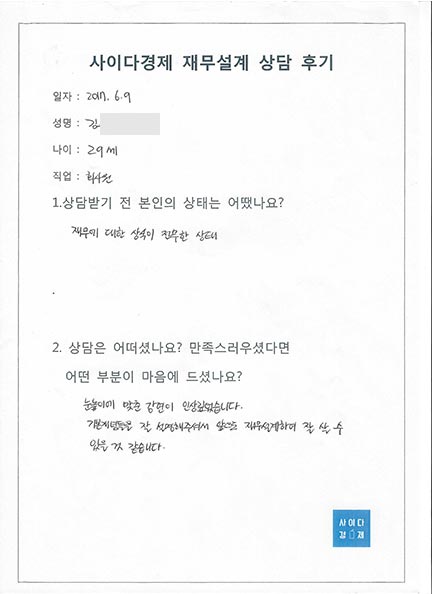 사이다경제 재무설계 상담 후기
일자 : 2017. 6. 9
성명 : 김
나이 : 29세
직업 : 회사원
1.상담받기 전 본인의 상태는 어땠나요?
재무에 대한 상식이 전무한 상태
2. 상담은 어떠셨나요? 만족스러우셨다면
어떤 부분이 마음에 드셨나요?
눈높이에 맞춘 강연이 인상깊었습니다.
기본개념들을 잘 설명해주셔서 앞으로 재무설계하며 잘 살 수
있을 것 같습니다.
사이다
경제